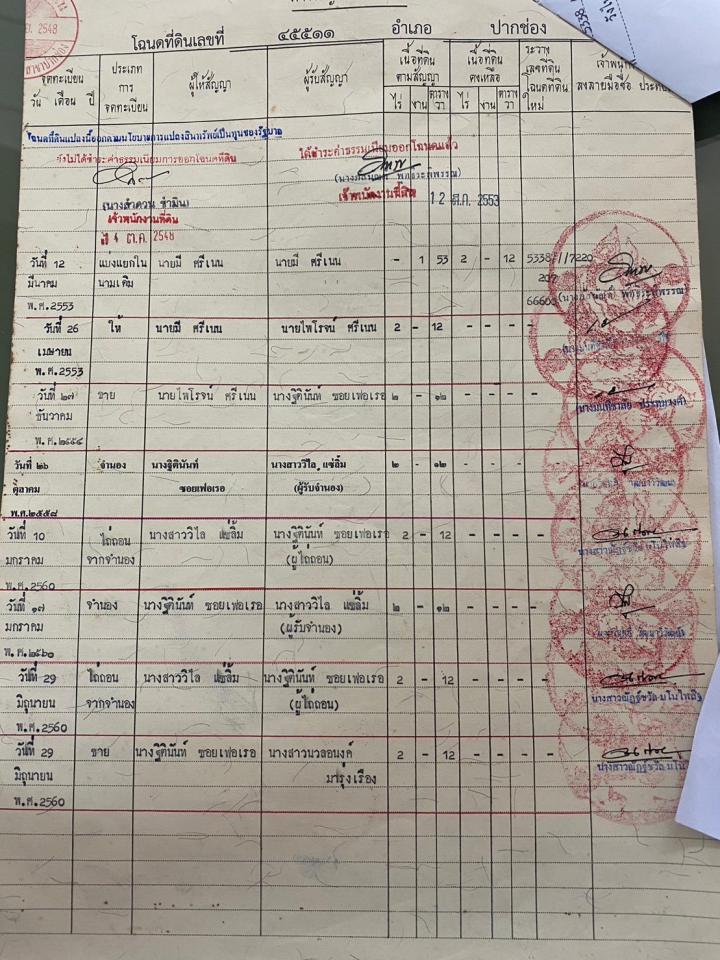 โฉนดที่ดินเลขที่ ๔๕๕๑๑ อำเภอ ปากช่อง
จดทะเบียน วัน เดือน ปี
ประเภท การ จดทะเบียน
ผู้ให้สัญญา
ผู้รับสัญญา
เนื้อที่ดิน ตามสัญญา ไร่ งาน ตารางวา
เนื้อที่ดิน คงเหลือ ไร่ งาน ตารางวา
ระวาง เลขที่ดิน โฉนดที่ดิน ใหม่
โฉนดที่ดินแปลงนี้ออกตามนโยบายการแปลงสินทรัพย์เป็นทุนของรัฐบาล
จึงไม่ได้ชำระค่าธรรมเนียมการออกโฉนดที่ดิน
ได้ชำระค่าธรรมเนียมออกโฉนดแล้ว
เจ้าพนักงานที่ดิน
12 มี.ค. 2553
เจ้าพนักงานที่ดิน
ต.ค. 2548
วันที่ 12 แบ่งแยกใน นายมี ศรีเนน นายมี ศรีเนน - 1 53 2 - 12 5338 7220
มีนาคม นามเดิม 207
พ.ศ.2553
วันที่ 26 ให้ นายมี ศรีเนน นายไพโรจน์ ศรีเนน 2 - 12 - - - -
เมษายน
พ.ศ.2553
วันที่ ๒๗ ขาย นายไพโรจน์ ศรีเนน นางฐิตินันท์ ซอยเฟอเรอ ๒ - ๑๒ - - - -
ธันวาคม
พ.ศ.๒๕๕๔
วันที่ ๒๖ จำนอง นางฐิตินันท์ นางสาววิไล แซ่ลิ้ม ๒ - ๑๒ - - - -
ตุลาคม ซอยเฟอเรอ (ผู้รับจำนอง)
พ.ศ.๒๕๕๘
วันที่ 10 ไถ่ถอน นางสาววิไล แซ่ลิ้ม นางฐิตินันท์ ซอยเฟอเรอ 2 - 12 - - - -
มกราคม จากจำนอง (ผู้ไถ่ถอน)
พ.ศ.2560
วันที่ ๑๗ จำนอง นางฐิตินันท์ ซอยเฟอเรอ นางสาววิไล แซ่ลิ้ม ๒ - ๑๒ - - - -
มกราคม (ผู้รับจำนอง)
พ.ศ.๒๕๖๐
วันที่ 29 ไถ่ถอน นางสาววิไล แซ่ลิ้ม นางฐิตินันท์ ซอยเฟอเรอ 2 - 12 - - - -
มิถุนายน จากจำนอง (ผู้ไถ่ถอน)
พ.ศ.2560
วันที่ 29 ขาย นางฐิตินันท์ ซอยเฟอเรอ นางสาวนวลอนงค์ 2 - 12 - - - -
มิถุนายน มารุ่งเรือง
พ.ศ.2560